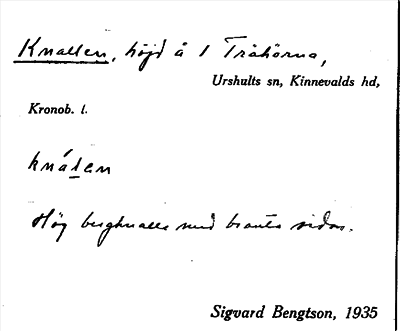 Knallen, höjd å 1 Tråhörna,
Urshults sn, Kinnevalds hd,
Kronob. l.
knálen
Hög bergknalle med branta sidor.
Sigvard Bengtson, 1935